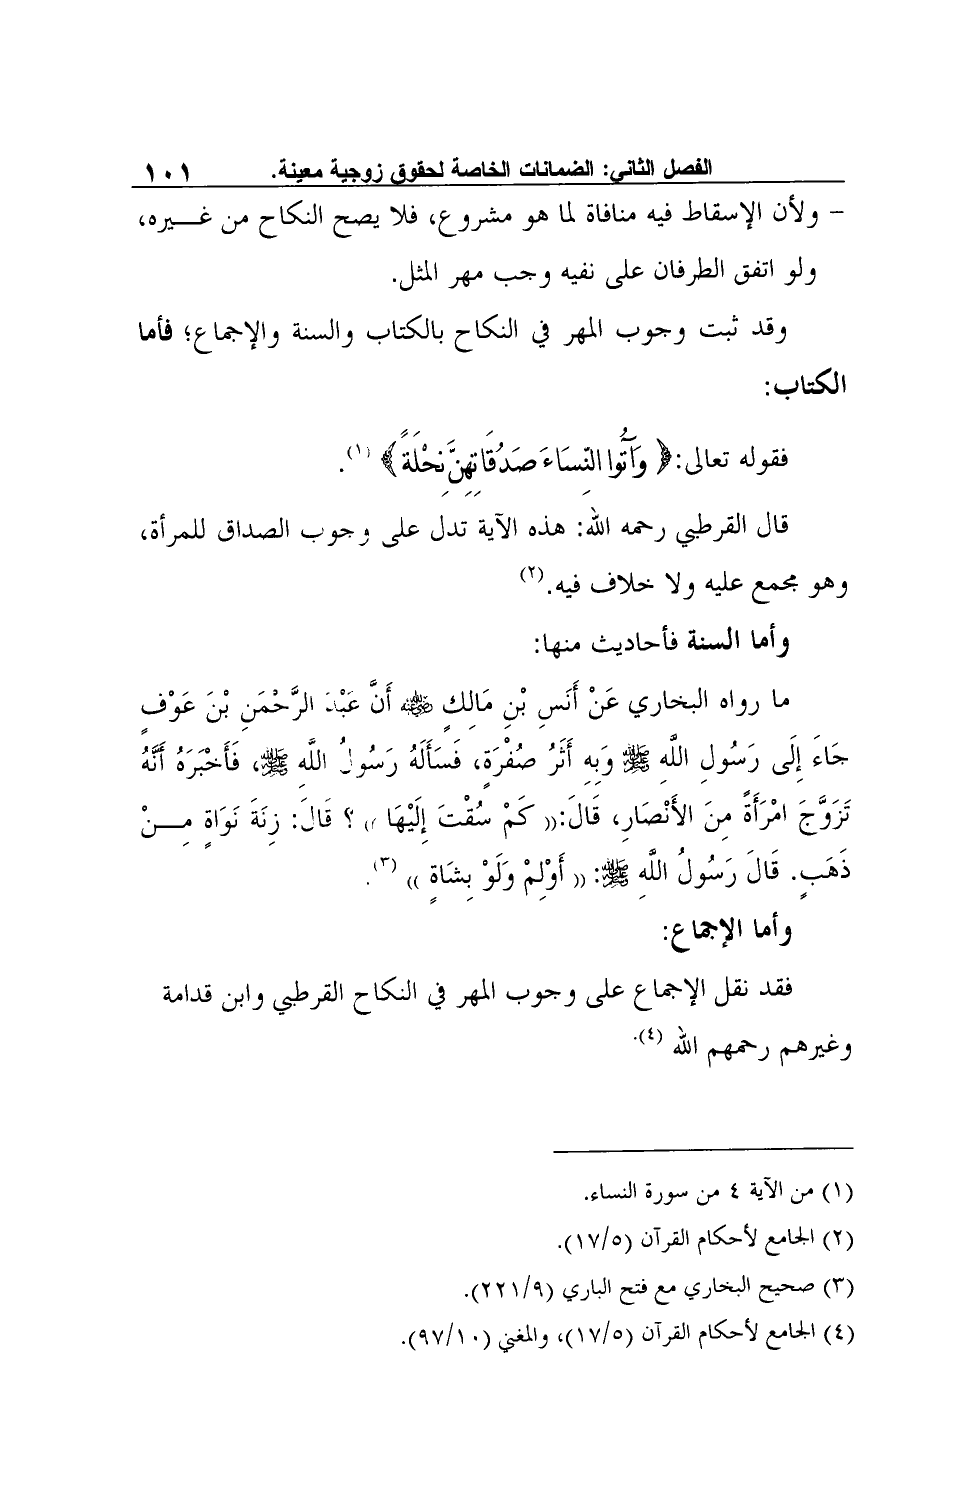 الفصل الثاني: الضمانات الخاصة لحقوق زوجية معينة. ١٠١
- ولأن الإسقاط فيه منافاة لما هو مشروع، فلا يصح النكاح من غـــيره،
ولو اتفق الطرفان على نفيه وجب مهر المثل.
وقد ثبت وجوب المهر في النكاح بالكتاب والسنة والإجماع؛ فأما
الكتاب:
فقوله تعالى: ﴿ وَآتُوا النِّسَاءَ صَدُقَاتِهِنَّ نِحْلَةً ﴾ (١).
قال القرطبي رحمه الله: هذه الآية تدل على وجوب الصداق للمرأة،
وهو مجمع عليه ولا خلاف فيه.(٢)
وأما السنة فأحاديث منها:
ما رواه البخاري عَنْ أَنَسِ بْنِ مَالِكٍ رضي الله عنه أَنَّ عَبْدَ الرَّحْمَنِ بْنَ عَوْفٍ
جَاءَ إِلَى رَسُولِ اللَّهِ ﷺ وَبِهِ أَثَرُ صُفْرَةٍ، فَسَأَلَهُ رَسُولُ اللَّهِ ﷺ، فَأَخْبَرَهُ أَنَّهُ
تَزَوَّجَ امْرَأَةً مِنَ الأَنْصَارِ، قَالَ:(( كَمْ سُقْتَ إِلَيْهَا )) ؟ قَالَ: زِنَةَ نَوَاةٍ مِـــنْ
ذَهَبٍ. قَالَ رَسُولُ اللَّهِ ﷺ: (( أَوْلِمْ وَلَوْ بِشَاةٍ )) (٣).
وأما الإجماع:
فقد نقل الإجماع على وجوب المهر في النكاح القرطبي وابن قدامة
وغيرهم رحمهم الله (٤).
(١) من الآية ٤ من سورة النساء.
(٢) الجامع لأحكام القرآن (١٧/٥).
(٣) صحيح البخاري مع فتح الباري (٢٢١/٩).
(٤) الجامع لأحكام القرآن (١٧/٥)، والمغني (٩٧/١٠).